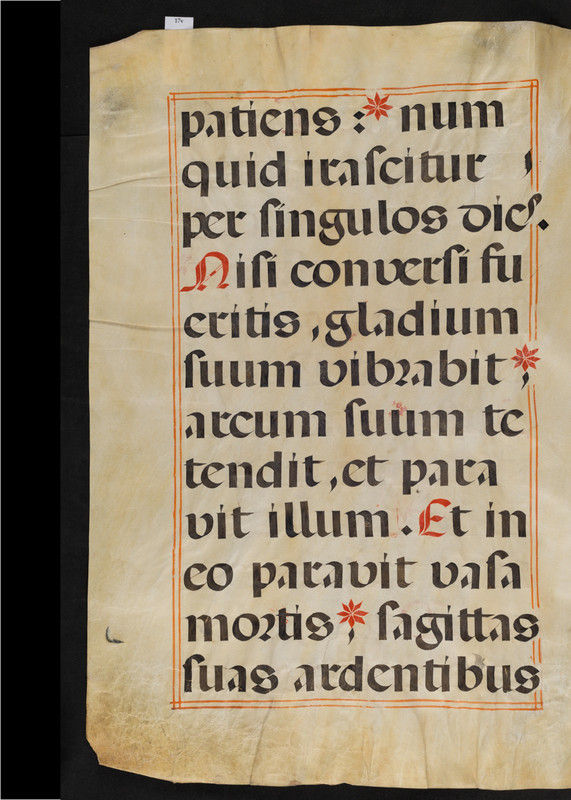 17v
patiens :* num
quid iraſcitur
per ſingulos dies.
Niſi converſi fu
eritis , gladium
ſuum vibrabit *;
arcum ſuum te
tendit , et para
vit illum . Et in
eo paravit vaſa
mortis ;* ſagittas
ſuas ardentibus